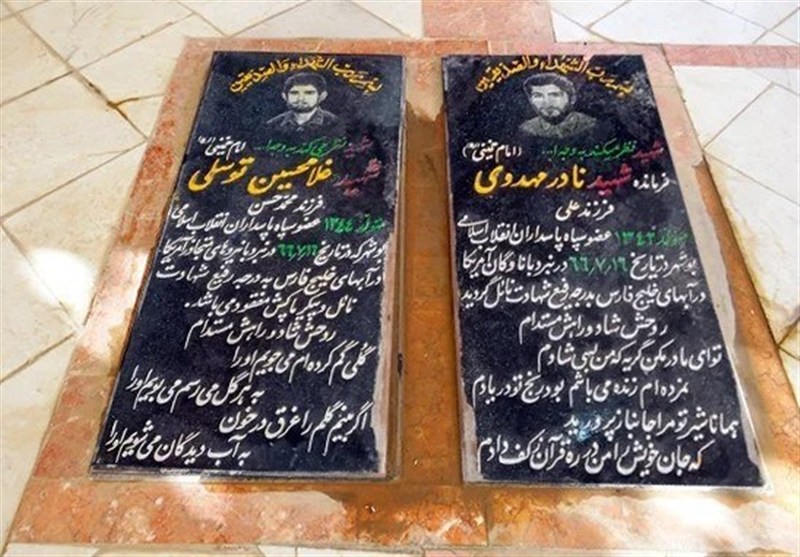 بسم رب الشهداء والصدیقین
شهید نظر میکند به وجه ا... (امام خمینی ره)
فرمانده شهید نادر مهدوی
فرزند علی
متولد ۱۳۴۲ عضو سپاه پاسداران انقلاب اسلامی
بوشهر در تاریخ ۶۶٫۷٫۱۶ در نبرد با ناوگان آمریکا
در آبهای خلیج فارس بدرجه رفیع شهادت نائل گردید
روحش شاد و راهش مستدام
تو ای مادر مکن گریه که من بسی شادم
نمرده ام زنده می باشم بود رنج تو در یادم
همانا شیر تو مرا پرورید
که جان خویش را من در ره قرآن ز کف دادم
بسم رب الشهداء والصدیقین
شهید نظر می کند به وجه ا... امام خمینی (ره)
شهید غلامحسین توسلی
فرزند محمد حسن
متولد ۱۳۴۴ عضو سپاه پاسداران انقلاب اسلامی
بوشهر که در تاریخ ۶۶٫۷٫۱۶ در نبرد با نیروهای متجاوز آمریکا
در آبهای خلیج فارس به درجه رفیع شهادت
نائل و پیکر پاکش مفقود می باشد.
روحش شاد و راهش مستدام
گلی گم کرده ام می جویم او را
به هر گل می رسم می بویم او را
اگر بینم گلم را غرق در خون
به آب دیدگان می شویم او را